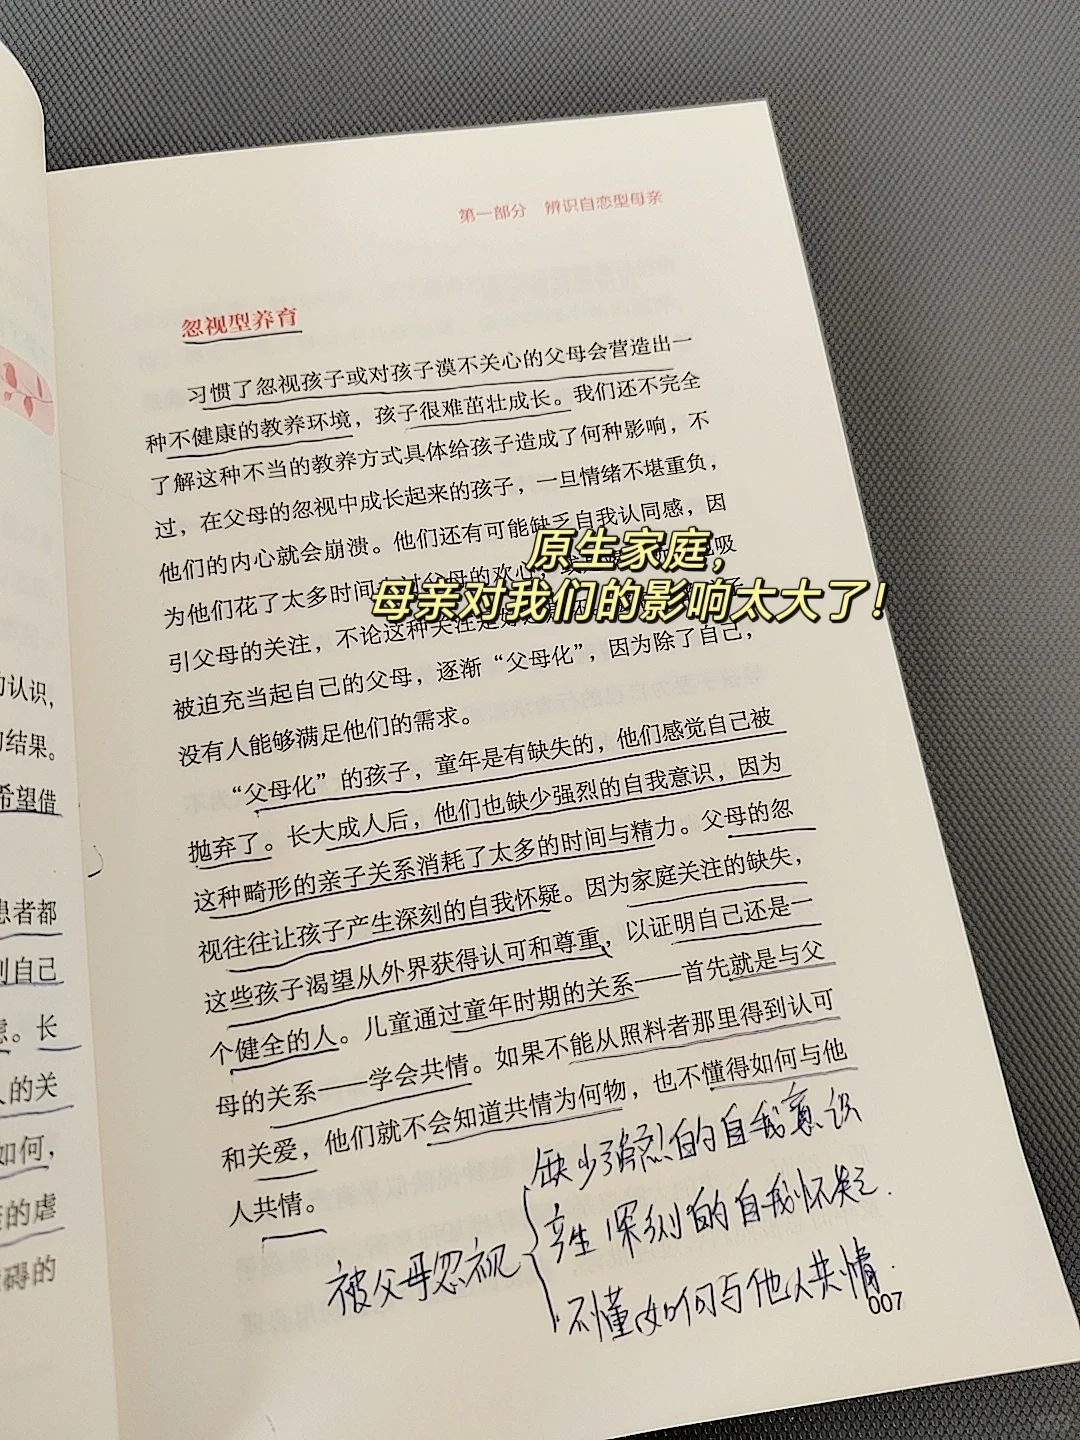 第一部分 辨识自恋型母亲
忽视型养育
习惯了忽视孩子或对孩子漠不关心的父母会营造出一
种不健康的教养环境，孩子很难茁壮成长。我们还不完全
了解这种不当的教养方式具体给孩子造成了何种影响，不
过，在父母的忽视中成长起来的孩子，一旦情绪不堪重负，
他们的内心就会崩溃。他们还有可能缺乏自我认同感，因
为他们花了太多时间 父母的欢心， 吸
引父母的关注，不论这种关注是
被迫充当起自己的父母，逐渐“父母化”，因为除了自己，
没有人能够满足他们的需求。
“父母化”的孩子，童年是有缺失的，他们感觉自己被
抛弃了。长大成人后，他们也缺少强烈的自我意识，因为
这种畸形的亲子关系消耗了太多的时间与精力。父母的忽
视往往让孩子产生深刻的自我怀疑。因为家庭关注的缺失，
这些孩子渴望从外界获得认可和尊重，以证明自己还是一
个健全的人。儿童通过童年时期的关系——首先就是与父
母的关系——学会共情。如果不能从照料者那里得到认可
和关爱，他们就不会知道共情为何物，也不懂得如何与他
人共情。
原生家庭，
母亲对我们的影响太大了！
被父母忽视
缺少强烈的自我意识
产生深刻的自我怀疑.
不懂如何与他人共情.
007
的认识，
的结果。
希望借
患者都
别自己
。长
人的关
如何，
的虐
碍的